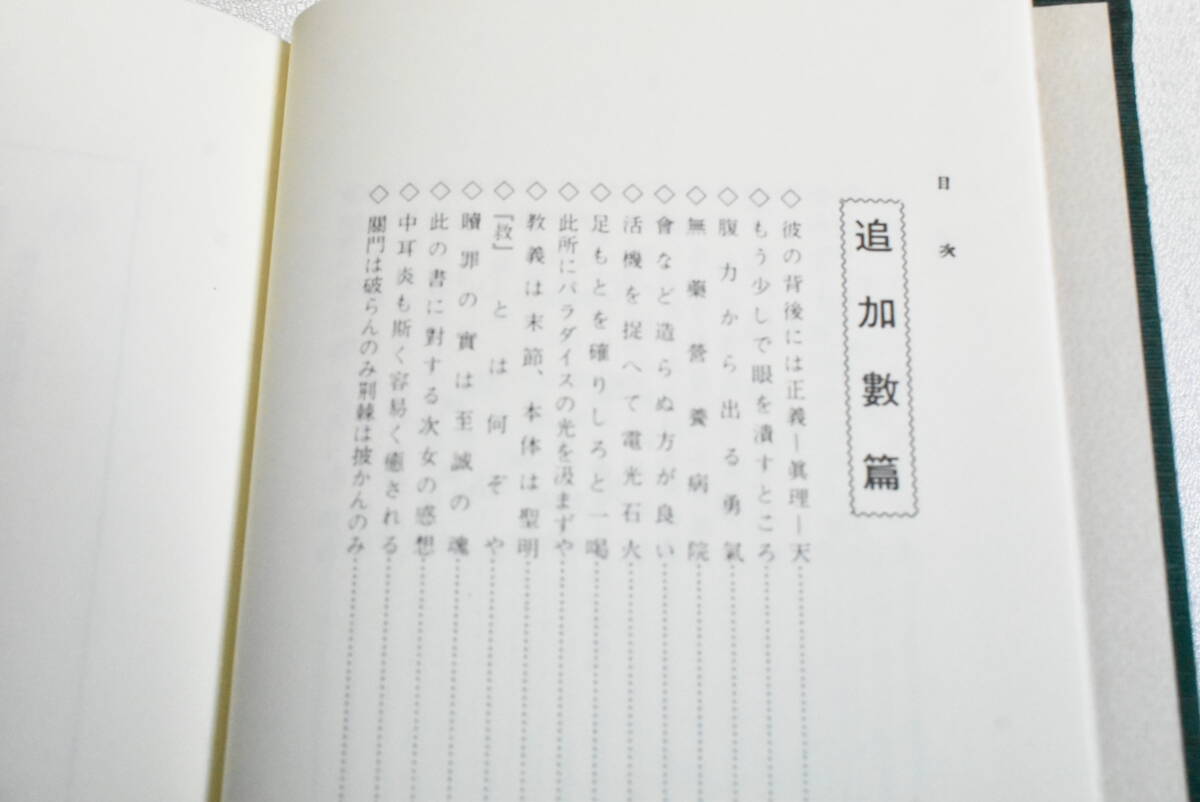 目次
追加數篇
◇彼の背後には正義―眞理―天
◇もう少しで眼を潰すところ
◇腹力から出る勇氣
◇無藥營養病院
◇會など造らぬ方が良い
◇活機を捉へて電光石火
◇足もとを確りしろと一喝
◇此所にパラダイスの光を汲まずや
◇教義は末節、本体は聖明
◇『救』とは何ぞや
◇贖罪の實は至誠の魂
◇此の書に對する次女の感想
◇中耳炎も斯く容易く癒される
◇關門は破らんのみ荆棘は披かんのみ